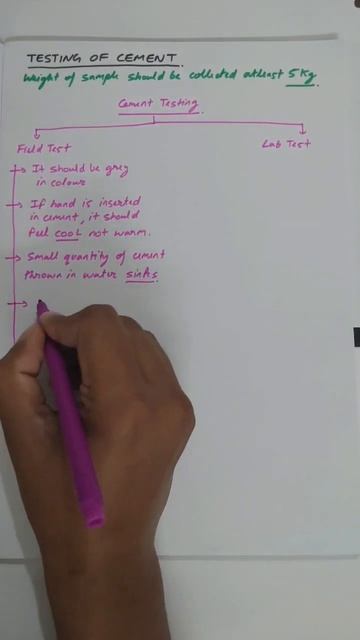 TESTING OF CEMENT.
Weight of sample should be collected atleast 5 Kg.
Cement Testing.
Field Test
Lab Test
It should be grey
in colour
If hand is inserted
in cement, it should
feel cool not warm.
Small quantity of cement
thrown in water sinks.